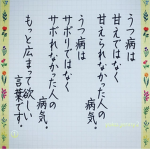 うつ病は
甘えではなく
甘えられなかった人の
病気。
うつ病は
サボリではなく
サボれなかった人の
病気。
もっと広まって欲しい
言葉です。